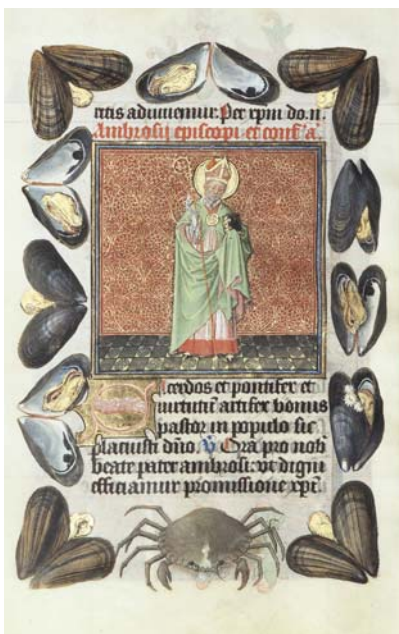 ritis adiuuemur. Per xpm do. n.
Ambrosij episcopi et conf' a'.
Sacerdos et pontifex et
uirtutū artifex bonus
pastor in populo sic
placuisti dño. V Ora pro nob
beate pater ambrosi. vt digni
efficiamur promissione xpi.